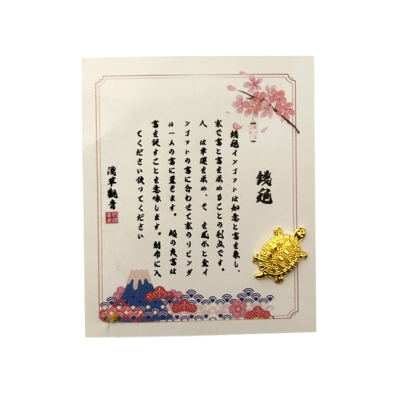 錢龜
錢龜インゴットは如意と富を象し、
家で富と富を求めることの利点です。
人、は幸運を求め、そ、も風水と金イ
ンゴットの富に合わせて家のリビンダ
ル一人の富に置きます。 姫の良富は
富を促すことを意味します。財布に入
てください使ってください
淺草觀音